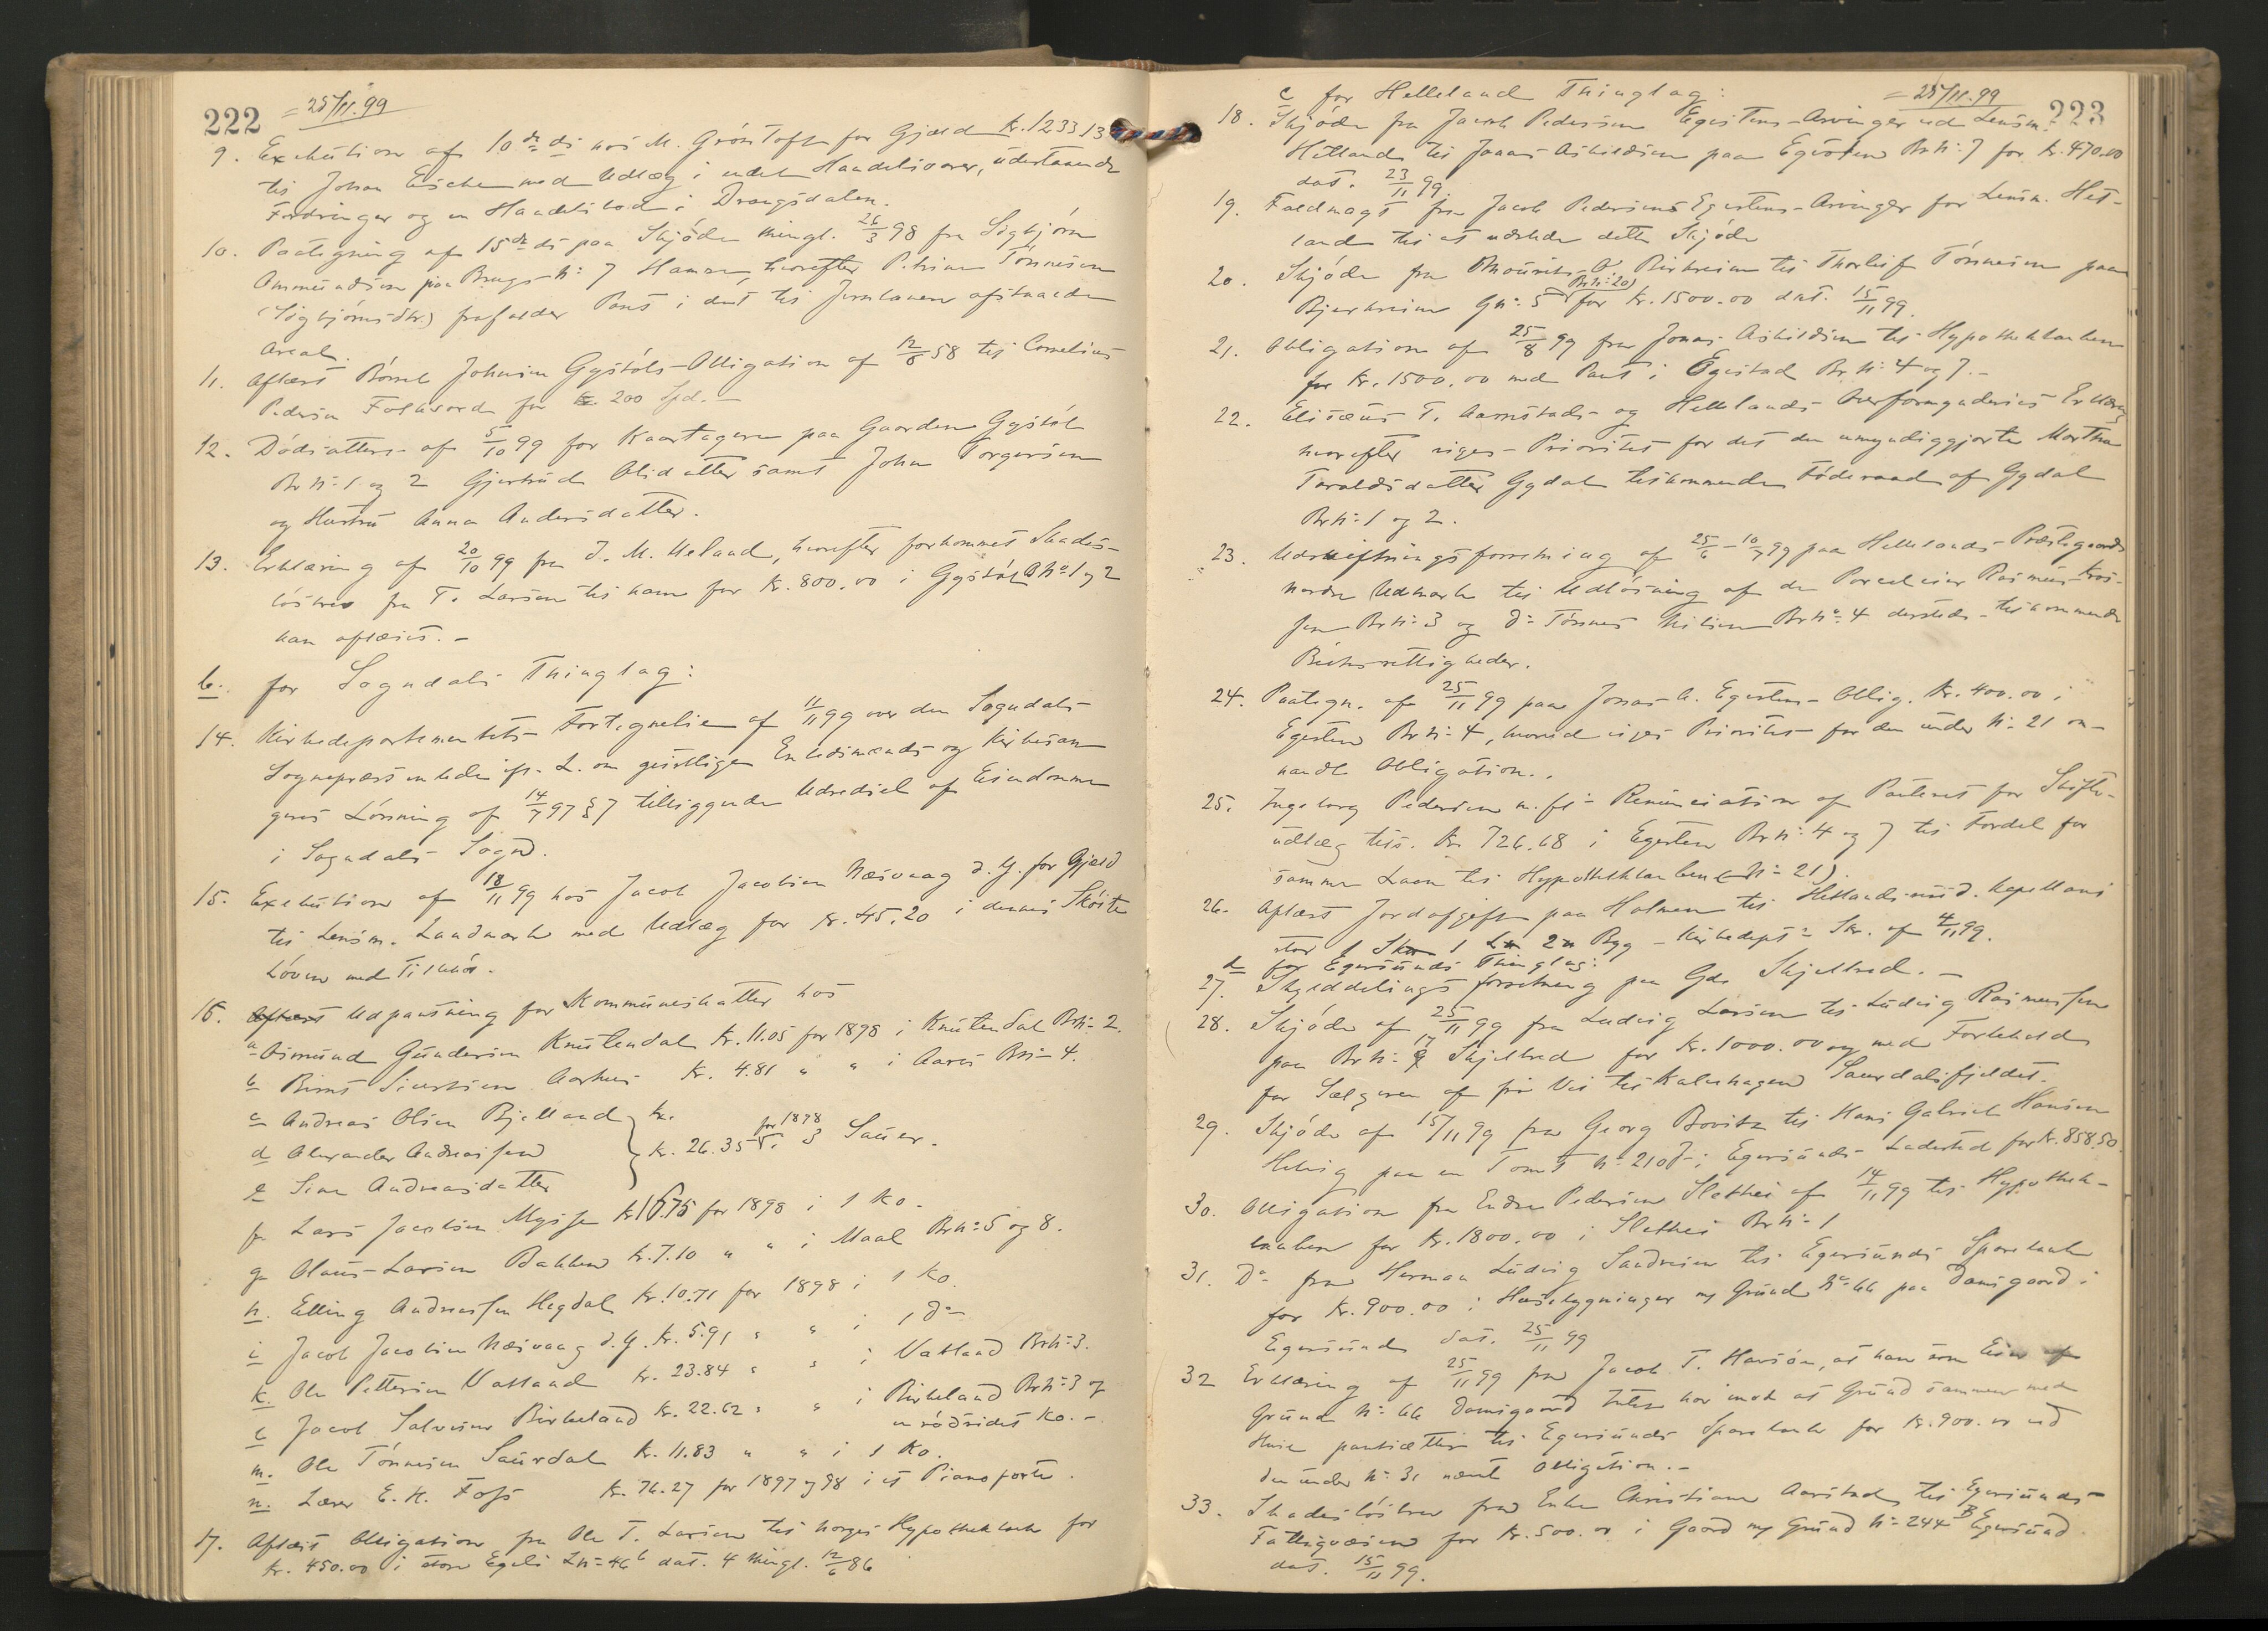 222 = 25/11.99
9. Exekution af 10de ds hos M. Gröntoft for Gjæld kr. 1233.13
til Johan med Udlæg i endel Handelsvarer, udestaaende
Fordringer og en Handelsbod i Drangsdalen.
10. Paategning af 15de ds paa Skjöde thingl. 26/3 98 fra Sigbjörn
Ommundsen paa Brugs-Nº 7 Hamre, hvorefter Petrine Tönnesen
(Sigbjörnsdtr.) frafalder Pant i det til Jernbanen afstaaede
Areal.
11. Aflæst Johnsen Gystöls Obligation af 12/8 58 til Cornelius
Pedersen Folkvord for 200 Spd. -
12. Dödsattest af 5/10 99 for Kaartagere paa Gaarden Gystöl
Br Nº 1 og 2 Gjertrud Olsdatter samt John Torgersen
og Hustru Anna Andersdatter.
13. Erklæring af 20/10 99 fra J. M. Ueland, hvorefter forkommet Skades-
lösbrev fra T. Larsen til ham for Kr. 800.00 i Gystöl Br Nº 1 og 2
kan aflæses. -
b. for Sogndals Thinglag:
14. Kirkedepartementets Fortegnelse af 11/11 99 over den Sogndals
Sognepræstembede ifl. L. om geistlige Embedsmænds og Kirkesan-
geres Lönning af 14/7 97 § 7 tilliggende Udredsel af Eiendomme
i Sogndals Sogn.
15. Exekution af 18/11 99 hos Jacob Jacobsen Næsvaag d. y. for Gjæld
til Lensm. Landmark med Udlæg for Kr. 45.20 i dennes Sköite
Löven med Tilbehör.
16. Aflæst Udpantning for Kommuneskatter hos
a Asmund Gundersen Knutendal Kr. 11.05 for 1898 i Knutendal Br Nº 2.
b Bernt Sivertsen Aarhus Kr. 4.81 " " i Aarus Br Nº 4.
c Andreas Olsen Bjelland } kr.
d Alexander Andreassen } Kr. 26.35 for 1878 i 3 Sauer.
e Sine Andreasdatter
f Lars Jacobsen Mysse Kr 16.75 for 1898 i 1 Ko.
g Olaus Larsen Bakken Kr. 7.10 " " i Maal Br Nº 5 og 8.
h. Elling Andreassen Hegdal Kr. 10.71 for 1898 i 1 Ko.
i Jacob Jacobsen Næsvaag d. y. Kr. 5.91 " " i 1 do
k. Ole Pettersen Vatland Kr. 23.84 " " i Vatland Br Nº 3.
l Jacob Salvesen Birkeland Kr. 22.62 " " i Birkeland Br Nº 3 og
en rödsidet Ko. -
m. Ole Tönnesen Saurdal Kr. 11.83 " " i 1 Ko.
n. Lærer E. H. Foss Kr. 76.27 for 1897 og 98 i et Pianoforte.
17. Aflæst Obligation fra Ole T. Larsen til Norges Hypothekbank for
Kr. 450.00 i store Egeli LNº 46 b dat. 4 thingl. 12/6 86
c for Helleland Thinglag: = 25/11.99 223
18. Skjöde fra Jacob Pedersen Egestens Arvinger ved Lensm.
Hetland til Jonas Askildsen paa Egesten Br Nº 7 for Kr. 470.00
dat. 23/11 99.
19. Fuldmagt fra Jacob Pedersens Egestens Arvinger for Lensm. Het-
land til at udstede dette Skjöde
20. Skjöde fra Mourits O. Birkrem til Thorleif Tönnesen paa
Bjerkreim GNº 5 (Br Nº 20) for Kr. 1500.00 dat. 15/11 99.
21. Obligation af 25/8 99 fra Jonas Askildsen til Hypothekbanken
for Kr. 1500.00 med Pant i Egestad Br Nº 4 og 7. -
22. Elisæus T. Aarrestads og Hellelands Overformynderies Erklæring
hvorefter viges Prioritet for det den umyndiggjorte Martha
Taraldsdatter Gydal tilkommende Föderaad af Gydal
Br Nº 1 og 2.
23. Udskiftningsforretning af 25/6 - 10/7 99 paa Hellelands Præstegaards
nordre Udmark til Udlösning af de Parcelleier Rasmus
sen Br Nº 3 og do Tönnes Nilsen Br Nº 4 dersteds tilkommende
Brugsrettigheder.
24. Paategn. af 25/11 99 paa Jonas A. Egestens Oblig. Kr. 400.00 i
Egesten Br Nº 4, hvorved viges Prioritet for den under Nº 21 om-
handl. Obligation..
25. Ingeborg Pedersen m. fl's Renunciation af Panteret for Skifte-
udlæg tils. Kr 726.68 i Egesten Br Nº 4 og 7 til Fordel for
samme Laan til Hypothekbanken (Nº 21).
26. Aflæst Jordafgift paa Holmen til Hetlands resid. Kapellani
stor 1 1 2 Byg - Kirkedept's Skr. af 4/11 99.
d for Egersunds Thinglag:
27. Skylddelingsforretning paa Gde Skjelbred. -
28. Skjöde af 25/11 99 fra Ludvig Larsen til Ludvig Rasmussen
paa Br Nº Skjelbred for Kr. 1000.00 og med Forbehold
for Sælgeren af fri Vei til Kalvehagen Saurdalsfjeldet.
29. Skjöde af 15/11 99 fra Georg Bovitz til Hans Gabriel Hansen
Helvig paa en Tomt Nº 210 i Egersunds Ladested for Kr. 858.50
30. Obligation fra Endre Pedersen Slethei af 14/11 99 til Hypothek-
banken for Kr. 1800.00 i Slethei Br Nº 1
31. Do fra Herman Ludvig Sandersen til Egersunds Sparebank
for Kr. 900.00 i Husebygninger og Grund Nº 66 paa Damsgaard i
Egersund dat. 25/11 99
32 Erklæring af 25/11 99 fra Jacob T. Havsöe, at han som Eier af
Grund Nº 66 Damsgaard Intet har imod at Grund sammen med
Huse pantsættes til Egersunds Sparebank for Kr. 900.00 ved
den under Nº 31 nævnt Obligation. -
33. Skadeslösbrev fra Enke Christiane Aarstad til Egersunds
Fattigvæsen for Kr. 500.00 i Gaard og Grund Nº 244 B Egersund
dat. 15/11 99.